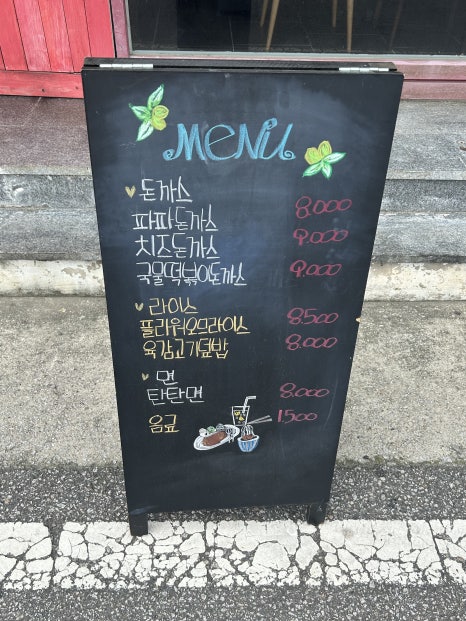 MENU
돈까스
파파돈까스 8.000
치즈돈까스 9.000
국물떡볶이돈까스 9.000
라이스
플라워오므라이스 8.500
육감고기덮밥 8.000
면
탄탄면 8.000
음료 1.500